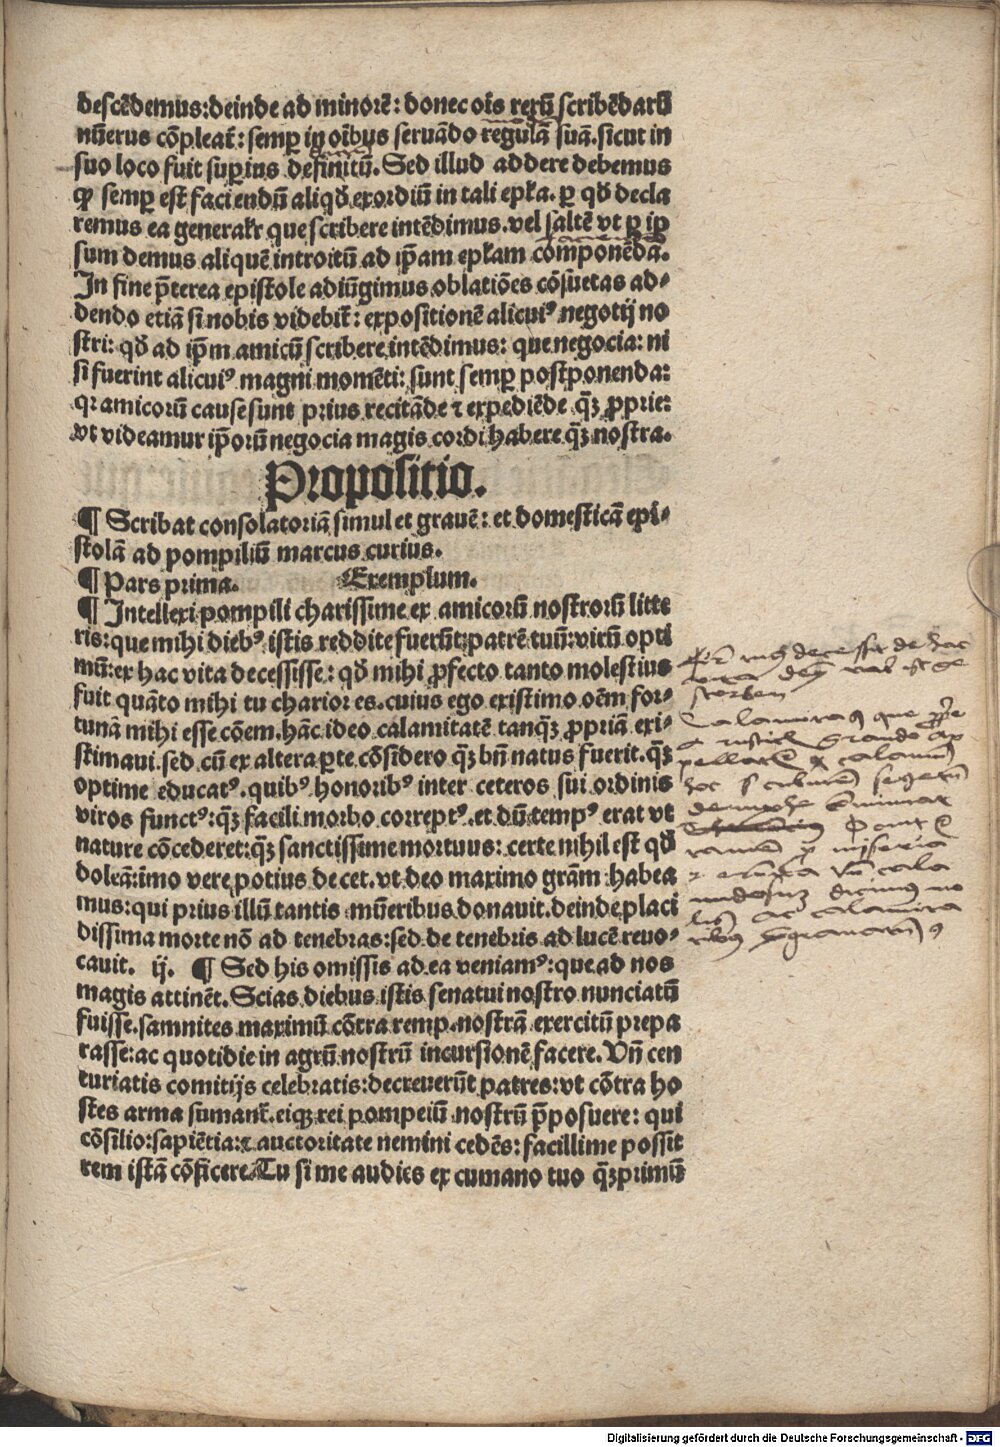 descēdemus: deinde ad minorē: donec oīs rerū scribēdarū
nūerus cōpleat̄: semꝑ in oībus seruādo regulā suā. sicut in
suo loco fuit suꝑius definitū. Sed illud addere debemus
ꝙ semꝑ est faciendū aliqđ exordiū in tali epl̄a. ꝑ qđ decla
remus ea generalr̄ que scribere intēdimus. vel saltē vt ꝑ ip
sum demus aliquē introitū ad ip̄am epl̄am componēdā.
In fine p̄terea epistole adiūgimus oblatiōes cōsuetas ad⸗
dendo etiā si nobis videbit̄: expositionē alicuiꝰ negotij no
stri: qđ ad ip̄m amicū scribere intēdimus: que negocia: ni
si fuerint alicuiꝰ magni momēti: sunt semꝑ postponenda:
qꝛ amicorū cause sunt prius recitāde ⁊ expediēde q̄ꝫ ꝓprie:
vt videamur ip̄orū negocia magis cordi habere q̄ꝫ nostra.
Propositio.
¶ Scribat consolatoriā simul et grauē: et domesticā epi⸗
stolā ad pompiliū marcus curius.
¶ Pars prima. Exemplum.
¶ Intellexi pompili charissime ex amicorū nostrorū litte
ris: que mihi diebꝰ istis reddite fuerūt: patrē tuū: virū opti
mū: ex hac vita decessisse: qđ mihi ꝓfecto tanto molestius
fuit quāto mihi tu charior es. cuius ego existimo oēm for⸗
tunā mihi esse cōem. hāc ideo calamitatē tanq̄ꝫ ꝓpriā exi⸗
stimaui. sed cū ex altera ꝑte cōsidero q̄ꝫ bn̄ natus fuerit. q̄ꝫ
optime educatꝰ. quibꝰ honoribꝰ inter ceteros sui ordinis
viros functꝰ: q̄ꝫ facili morbo correptꝰ. et dū tempꝰ erat vt
nature cōcederet: q̄ꝫ sanctissime mortuus: certe nihil est qđ
doleā: īmo vere potius decet. vt deo maximo grām habea
mus: qui prius illū tantis mūeribus donauit. deinde placi
dissima morte nō ad tenebras: sed de tenebris ad lucē reuo⸗
cauit. ij. ¶ Sed his omissis ad ea veniamꝰ: que ad nos
magis attinēt. Scias diebus istis senatui nostro nunciatū
fuisse. samnites maximū cōtra remp. nostrā exercitū prepa
rasse: ac quotidie in agrū nostrū incursionē facere. Vn̄ cen
turiatis comitijs celebratis: decreuerūt patres: vt cōtra ho
stes arma sumant̄. eiqꝫ rei pompeiū nostrū p̄posuere: qui
cōsilio: sapiētia: ⁊ auctoritate nemini cedēs: facillime possit
rem istā cōficere. Tu si me audies ex cumano tuo q̄ꝫprimū
decessit de hac
vita
storben
Calamitas que
grando
Digitalisierung gefördert durch die Deutsche Forschungsgemeinschaft - DFG